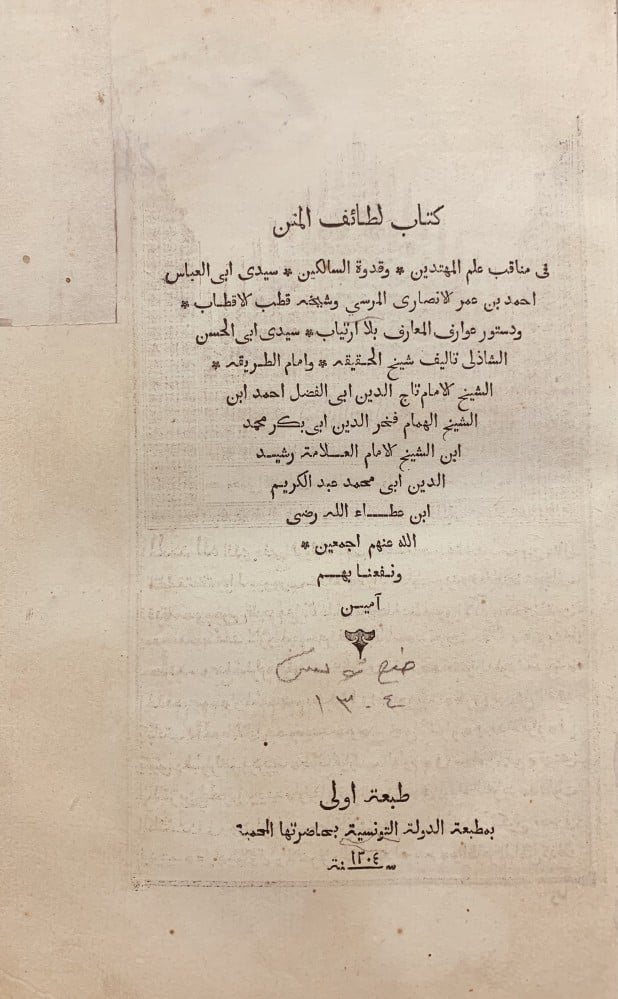 كتاب لطائف المنن
فى مناقب علم المهتدين * وقدوة السالكين * سيدى ابى العباس
احمد بن عمر لانصارى المرسي وشيخه قطب لاقطاب *
ودستور عوارف المعارف بلا ارتياب * سيدى ابى الحسن
الشاذلى تاليف شيخ الحقيقه * وامام الطريقه *
الشيخ لامام تاج الدين ابى الفضل احمد ابن
الشيخ الهمام فخر الدين ابى بكر محمد
ابن الشيخ لامام العلامة رشيد
الدين ابى محمد عبد الكريم
ابن عطاء الله رضى
الله عنهم اجمعين *
ونفعنا بهم
آمين
تونس
١٣٠٤
طبعة اولى
بمطبعة الدولة التونسية بحاضرتها المحمية
سنة ١٣٠٤